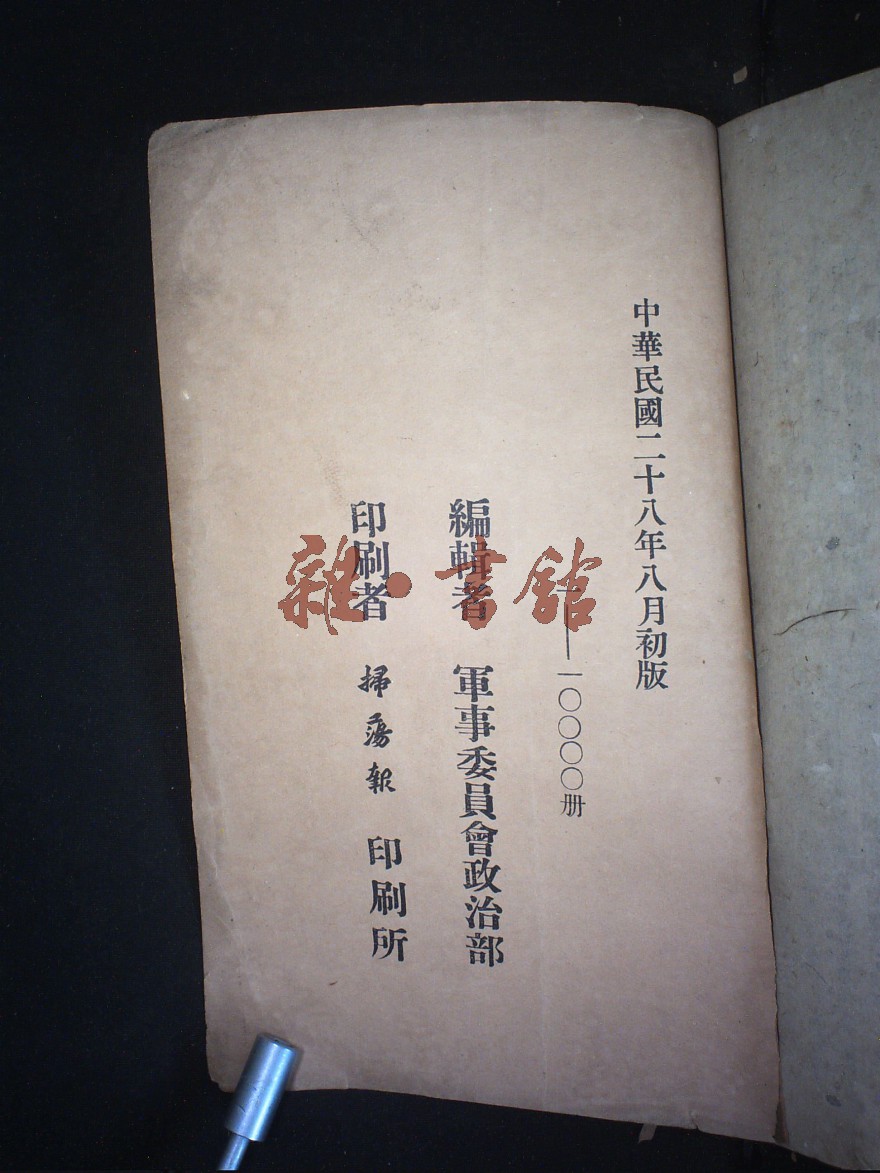 中華民國二十八年八月初版
一——一〇〇〇〇册
編輯者 軍事委員會政治部
印刷者 掃蕩報 印刷所
雜·書館